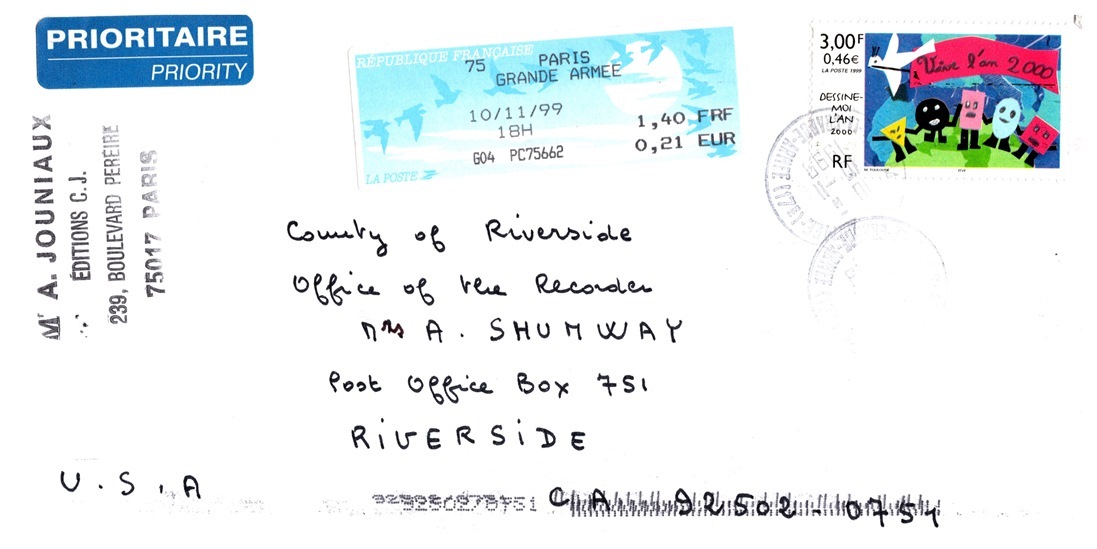 PRIORITAIRE
PRIORITY
Mr A. JOUNIAUX
ÉDITIONS C.J.
239, BOULEVARD PEREIRE
75017 PARIS
RÉPUBLIQUE FRANÇAISE
75 PARIS
GRANDE ARMEE
10/11/99
18H
1,40 FRF
0,21 EUR
G04 PC75662
LA POSTE
3,00F
0,46€
LA POSTE 1999
Vive l'an 2000
DESSINE-
MOI
L'AN
2000
RF
County of Riverside
Office of the Recorder
Mrs A. SHUMWAY
Post Office Box 751
RiVERSiDE
U.S.A
CA 92502-0751